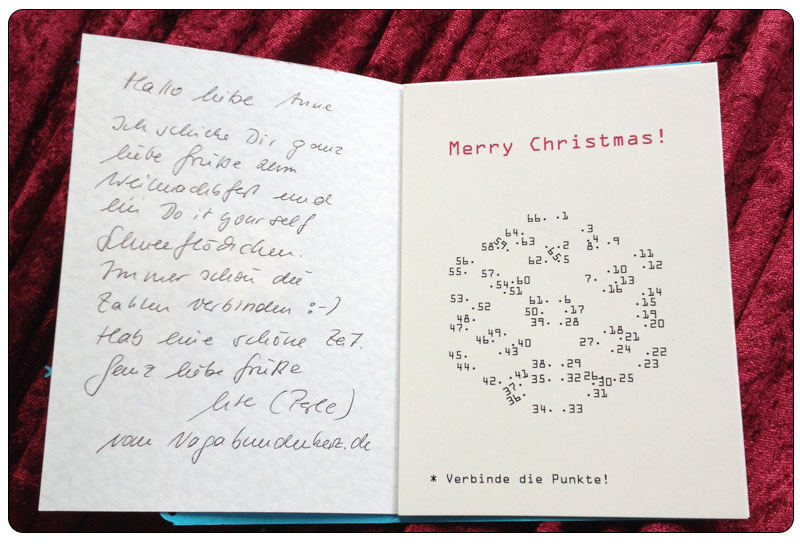 Hallo liebe Anne
Ich schicke Dir ganz
liebe Grüße zum
Weihnachtsfest und
ein Do it yourself
Schneeflöckchen.
Immer schön die
Zahlen verbinden :-)
Hab eine schöne Zeit.
Ganz liebe Grüße
Ute (Perle)
vom Vagabundenherz.de
Merry Christmas!
66. .1
64. .3
58. 59. .63 . .2 65. .4 8. .9
62. .5 .11
56. .10 .12
55. 57. 7. .13
.54 .60 .16 .14
.51
53. .52 61. .6 .15
50. .17
48. 39. .28 .19
47. .20
49. .18
46. .40 27. .21
45. .43 .24 .22
44. 38. .29 .23
42. .41 35. .32 26. .30 .25
37.
36. .31
34. .33
* Verbinde die Punkte!